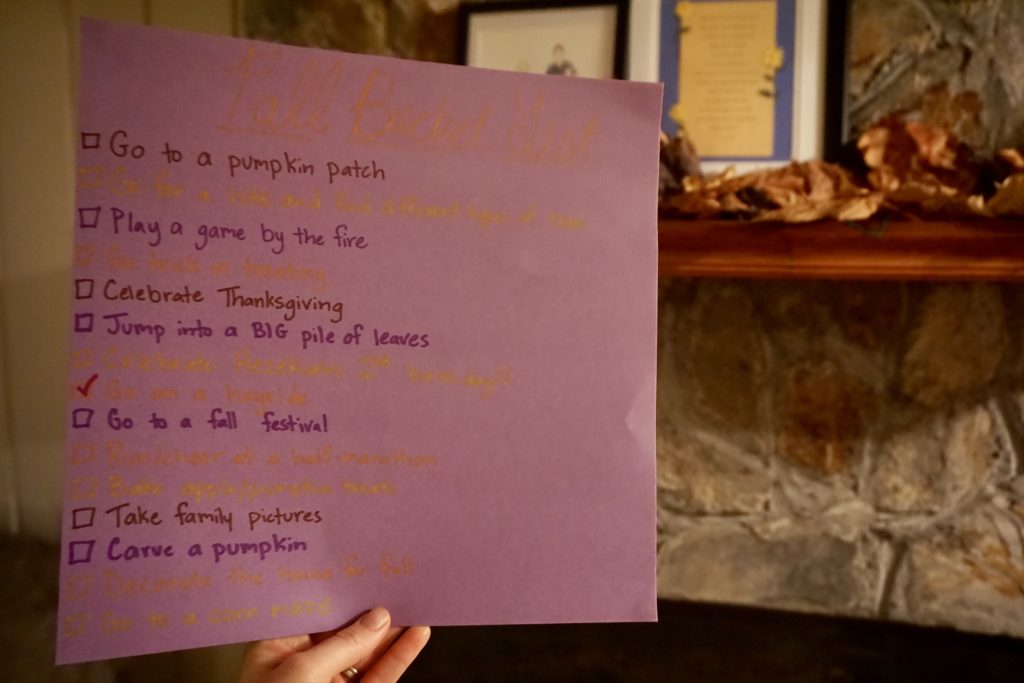 Fall Bucket List
Go to a pumpkin patch
Go for a hike and find different types of
Play a game by the fire
Go trick or treating
Celebrate Thanksgiving
Jump into a BIG pile of leaves
Celebrate 2nd birthday!!
Go on a hayride
Go to a fall festival
Run/cheer at a half-marathon
Bake apple/pumpkin treats
Take family pictures
Carve a pumpkin
Decorate the house for fall
Go to a corn maze